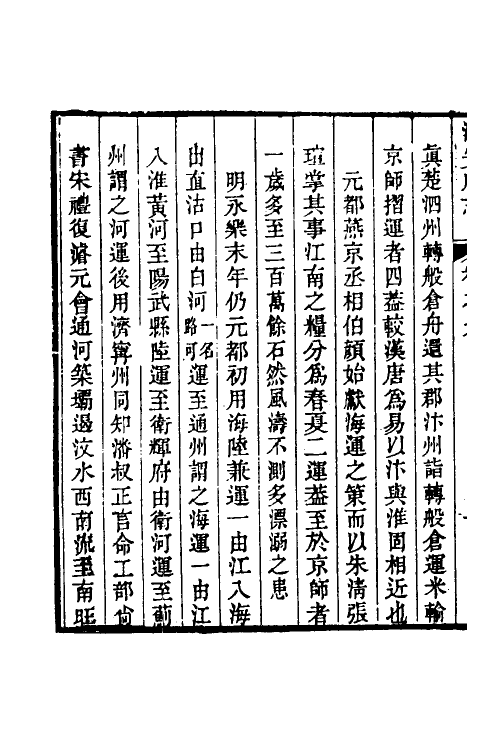 真楚泗州轉般倉舟還其郡汴州詣轉般倉運米輸
京師摺運者四葢較漢唐爲易以汴與淮固相近也
元都燕京丞相伯顏始獻海運之策而以朱淸張
瑄掌其事江南之糧分爲春夏二運葢至於京師者
一歲多至三百萬餘石然風濤不測多漂溺之患
明永樂末年仍元都初用海陸兼運一由江入海
出直沽口由白河一名路河運至通州謂之海運一由江
入淮黃河至陽武縣陸運至衛輝府由衛河運至薊
州謂之河運後用濟寧州同知潘叔正言命工部尙
書宋禮復濬元會通河築壩遏汶水西南流至南旺